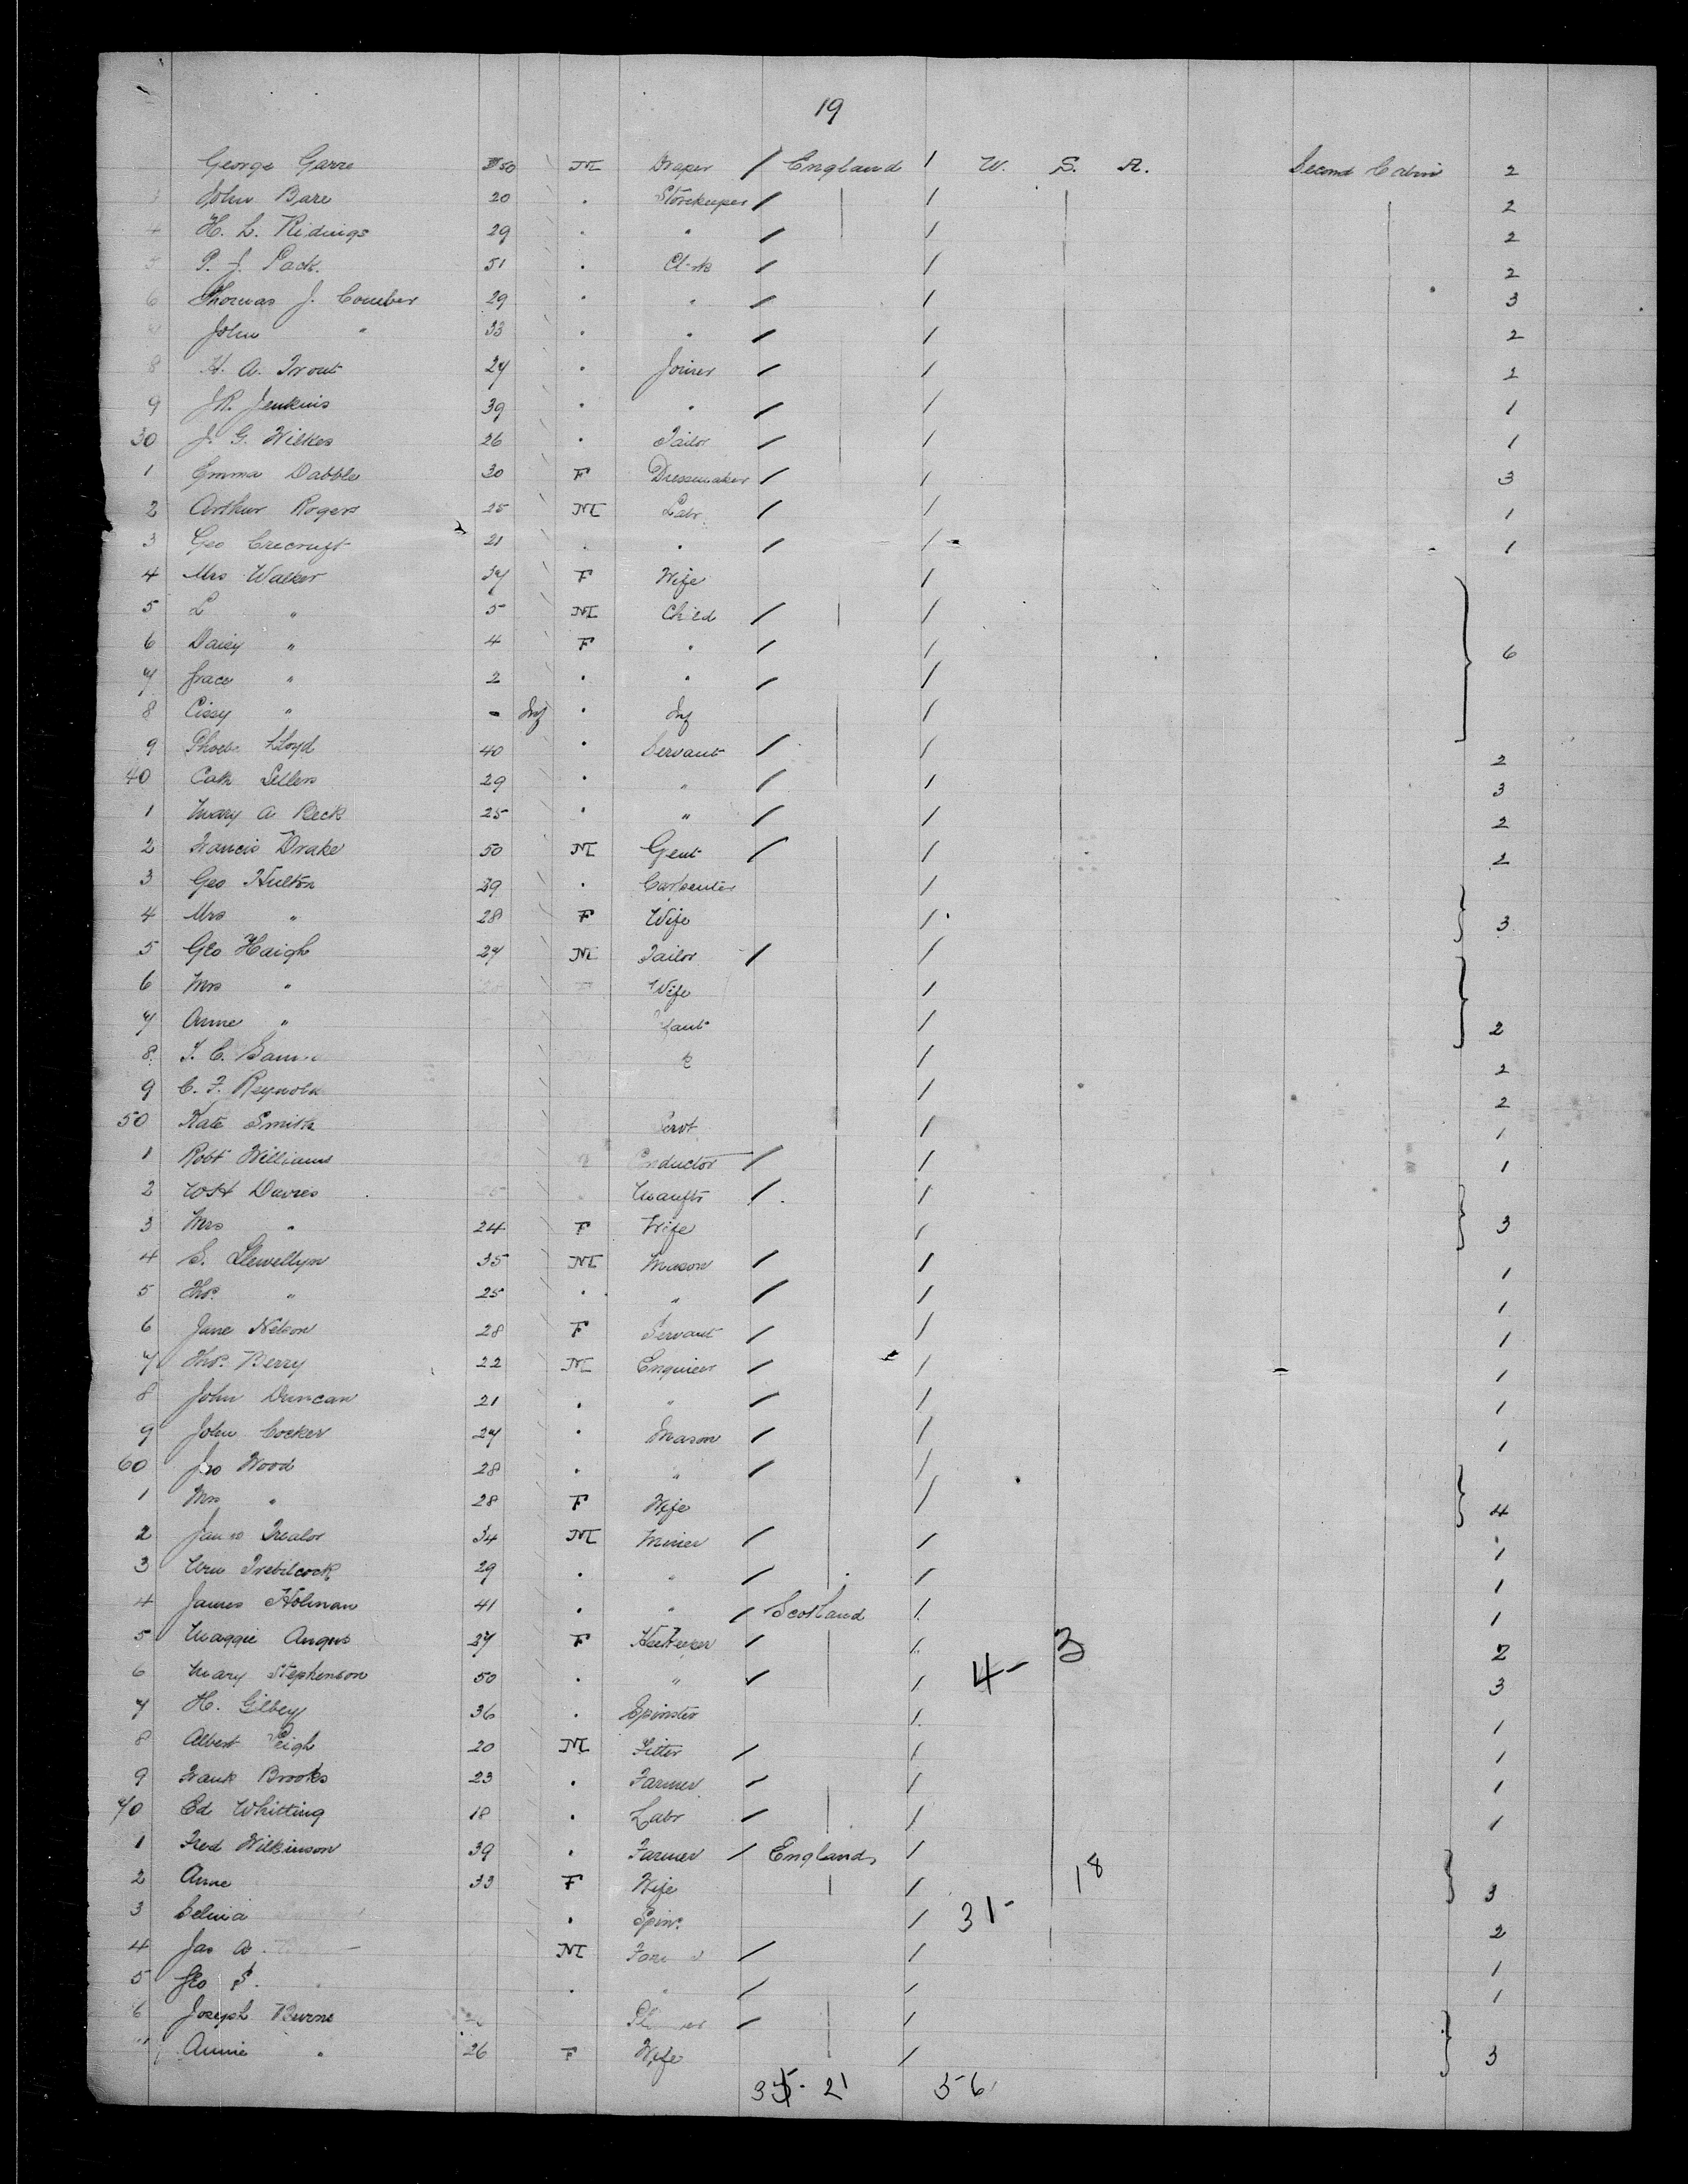 19
George Garre 50 M Draper / England / U. S. A. Second Cabin 2
John Bare 20 . Storekeeper / / 2
4 H. L. Ridings 29 . " / / 2
5 P. J. Pack. 51 . Clerk / / 2
6 Thomas J. Comber 29 . " / / 3
John " 33 . " / / 2
8 H. A. Trout 27 . Joiner / / 2
9 J.R. Jenkins 39 . " / / 1
30 J. G. Wilkes 26 . Tailor / / 1
1 Emma Dabble 30 F Dressmaker / / 3
2 Arthur Rogers 25 M Labr. / / 1
3 Geo 21 . . / / 1
4 Mrs Walker 37 F Wife /
5 L " 5 M Child / /
6 Daisy " 4 F " / / 6
7 Grace " 2 . " / /
8 Cissy " - Inf . Inf /
9 Phoeb Lloyd 40 . Servant / / 2
40 Cath Sellers 29 . " / / 3
1 Mary A Reck 25 . " / / 2
2 Francis Drake 50 M Gent / / 2
3 Geo Hulton 29 . Carpenter /
4 Mrs " 28 F Wife / 3
5 Geo Haigh 27 M Tailor / /
6 Mrs " Wife /
7 Anne " fant / 2
8 / 2
9 C. F. Reynold / 2
50 Kate Smith Servt / 1
1 Robt Williams Conductor / / 1
2 W H Davies Manuftr / /
3 Mrs " 24 F Wife / 3
4 S. Llewellyn 35 M Mason / / 1
5 Thos. " 25 . " / / 1
6 Jane Nelson 28 F Servant / / 1
7 Thos. Berry 22 M Engineer / / 1
8 John Duncan 21 . " / / 1
9 John Cocker 27 . Mason / / 1
60 Jno Wood 28 . " / /
1 Mrs " 28 F Wife / 4
2 James Trealor 34 M Miner / / 1
3 Wm Trebilcock 29 . " / / 1
4 James Holman 41 . " / Scotland / 1
5 Maggie Angus 27 F / / 3 2
6 Mary Stephenson 50 . " / / 4- 3
7 H. Gilbey 36 . Spinster / 1
8 Albert Leigh 20 M Fitter / / 1
9 Frank Brooks 23 . Farmer / / 1
70 Ed Whitting 18 . Labr / / 1
1 Fred Wilkinson 39 . Farmer / England /
2 Anne 33 F Wife / 18 3
3 Selina . Spinr. / 31- 2
4 Jas A. M / / 1
5 Geo S. . " / / 1
6 Joseph Burns / /
Annie " 26 F Wife / 3
35- 21 56